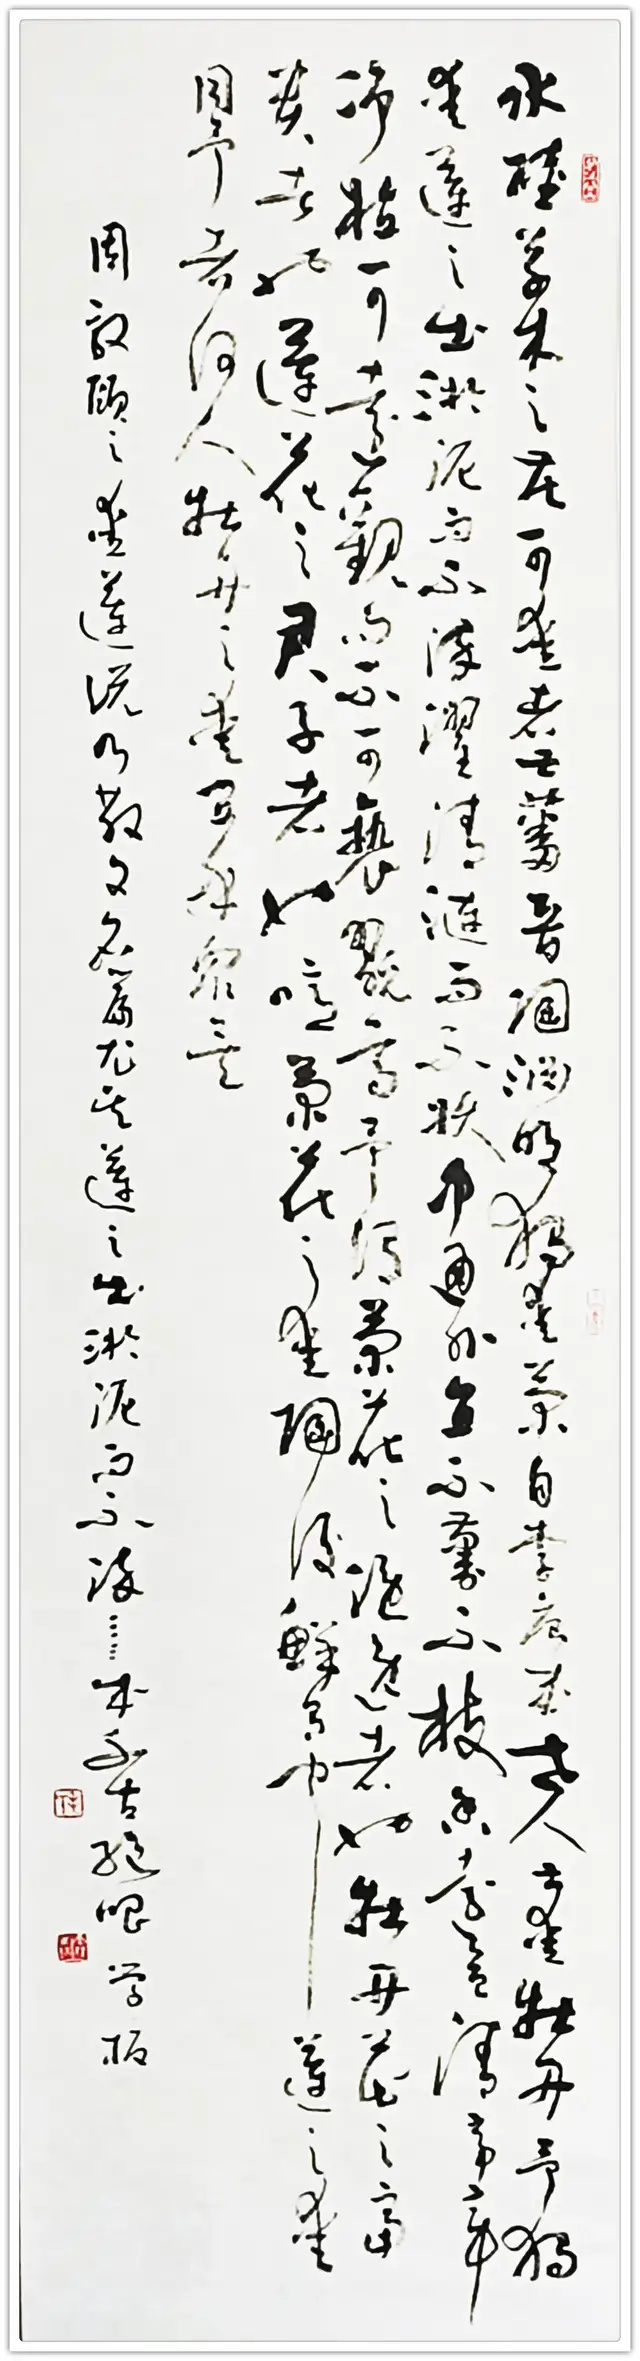 水陸草木之花可愛者甚蕃晉陶淵明獨愛菊自李唐來世人甚愛牡丹予獨
愛蓮之出淤泥而不染濯清漣而不妖中通外直不蔓不枝香遠益清亭亭
淨植可遠觀而不可褻翫焉予謂菊花之隱逸者也牡丹花之富
貴者也蓮花之君子者也噫菊花之愛陶後鮮有聞蓮之愛
同予者何人牡丹之愛宜乎眾矣
周敦頤之愛蓮說乃散文名篇尤其蓮之出淤泥而不染……成千古絕唱 學板